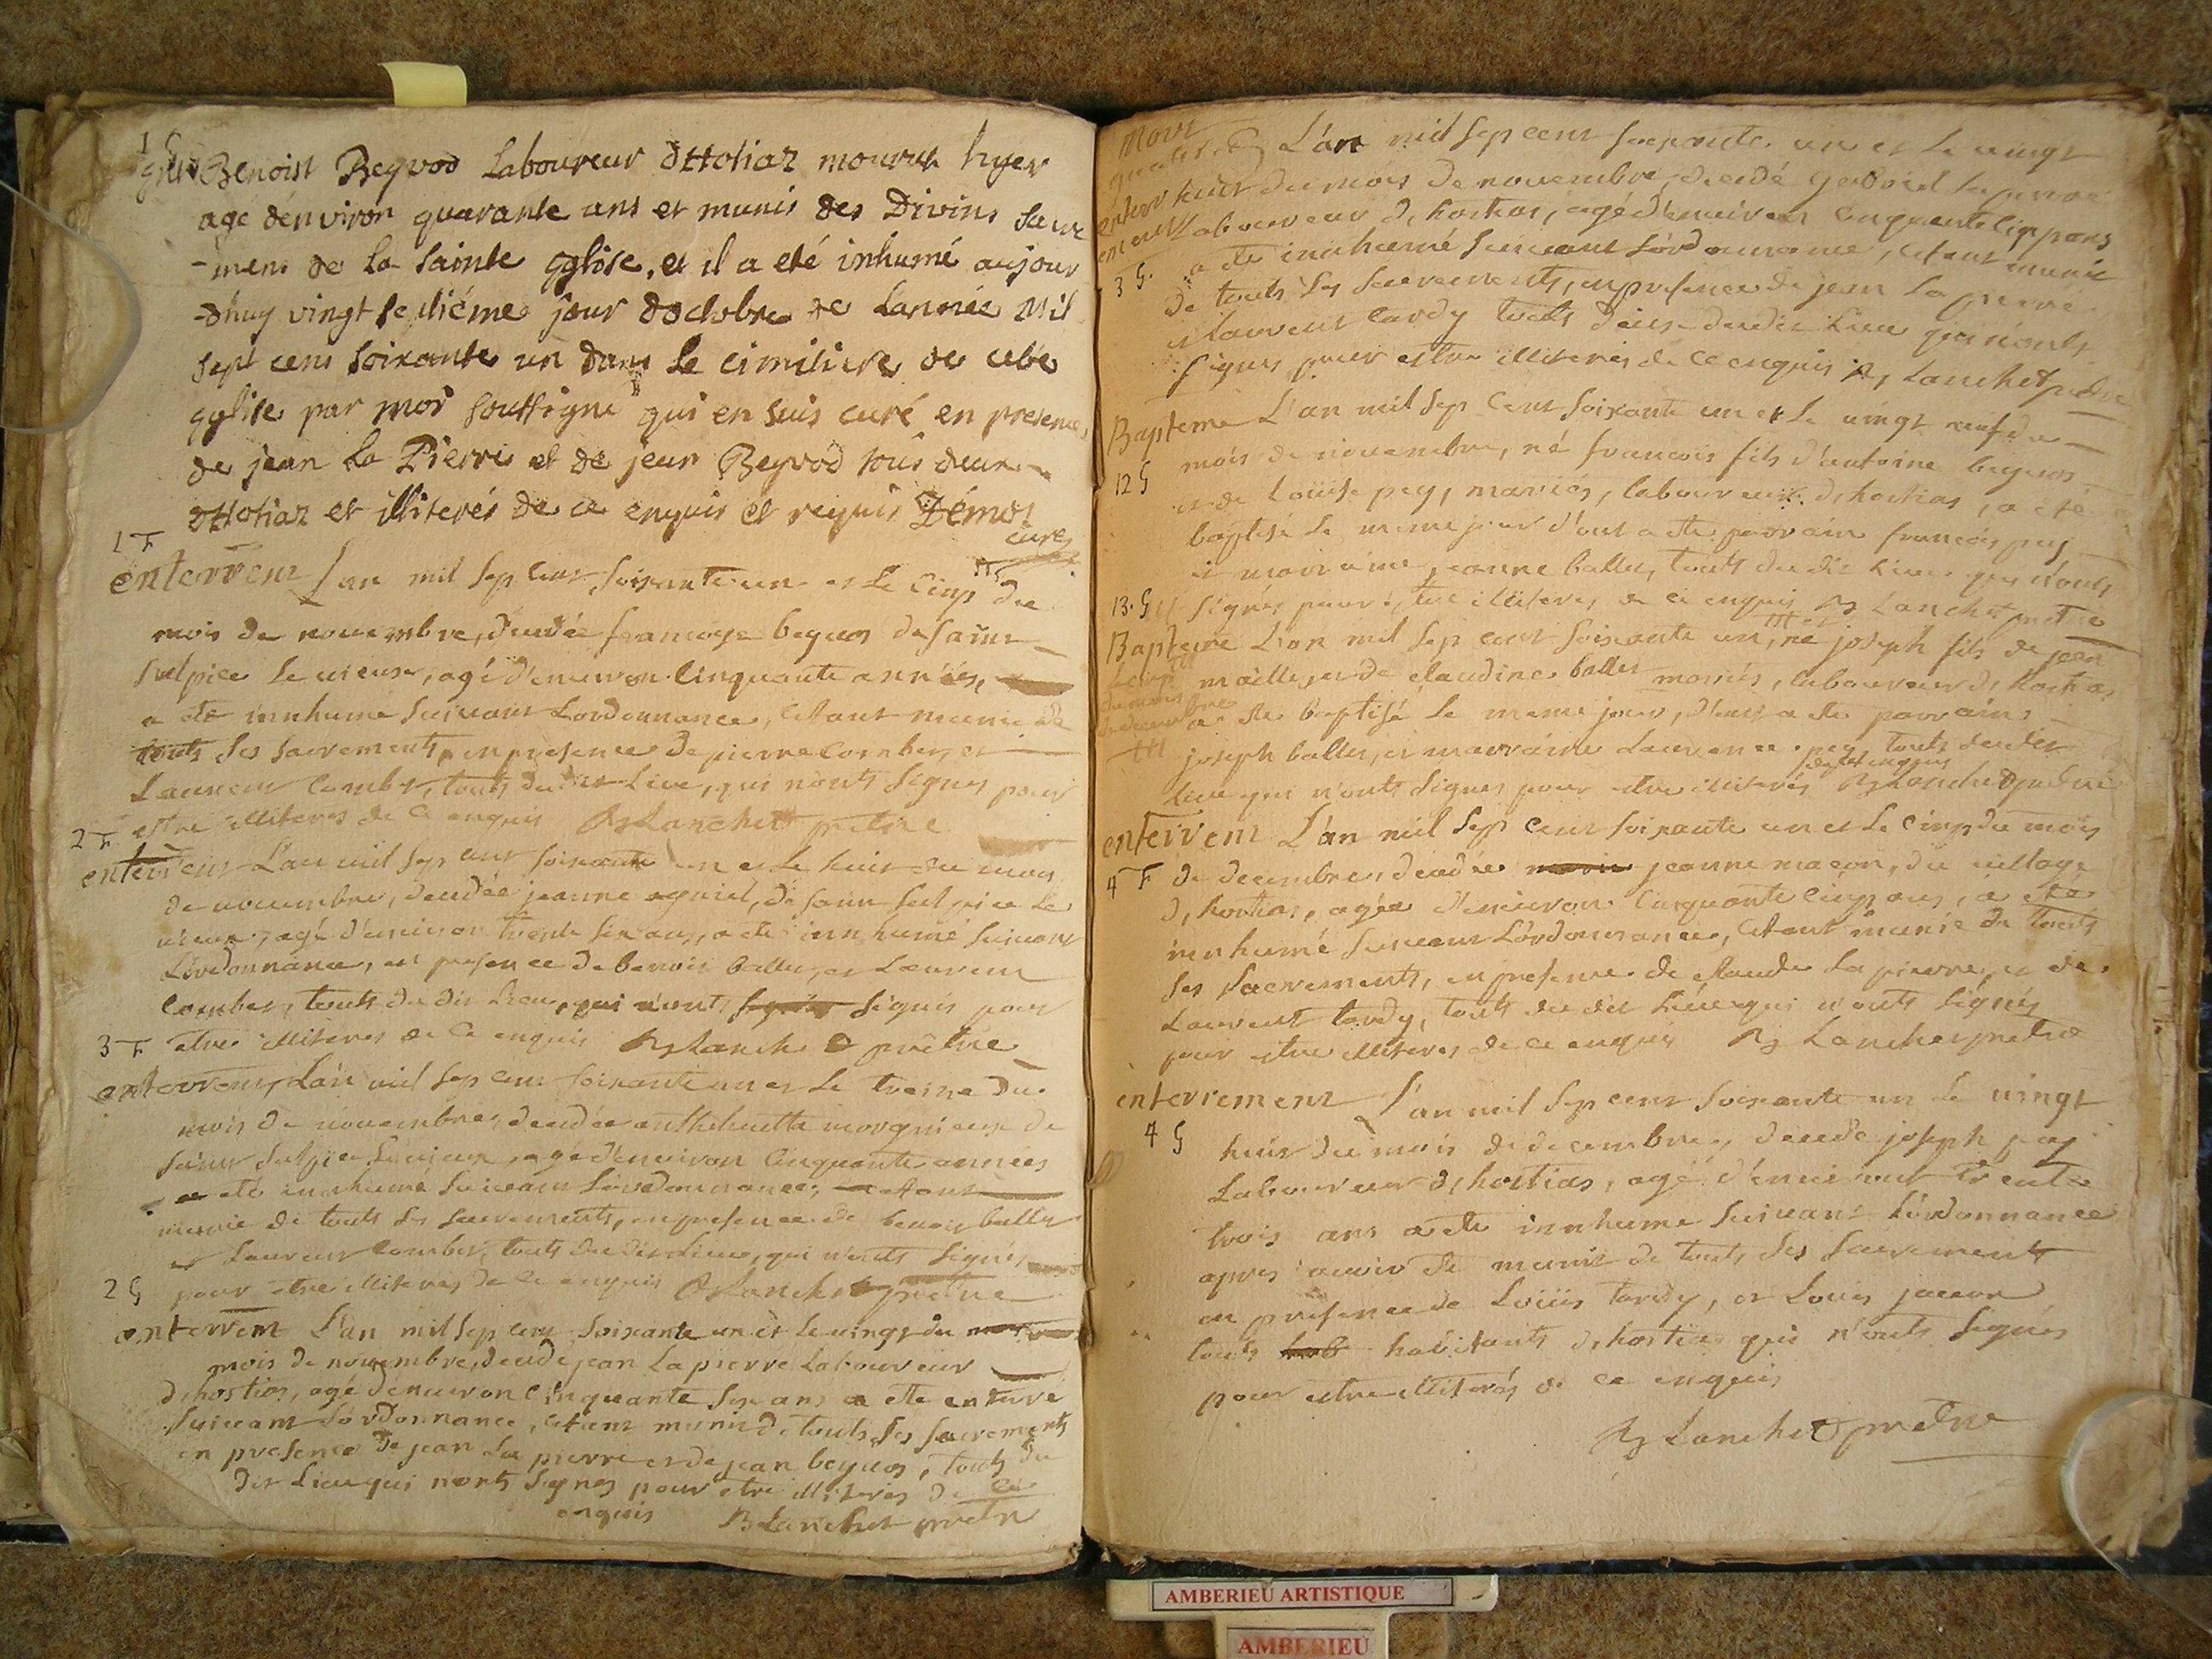 1 G
Benoist Beyvod Laboureur d'ttotiaz mourut hyer
agé d'énviron quarante ans et munis des Divins sacre
-mens de la sainte eglise, et il a eté inhumé aujour
-d'huy vingt jour d'octobre de L'année Mil
sept cens soixante un dans le cimitiere de cete
eglise par moi soussigné qui en suis curé en presence
de jean La Pierre et de jean Beyvod tous deux
d'ttotiaz et illiterés de ce enquis et requis Démos
curé
1 F
enterrem L'an mil sep cent soixante un et le cinq du
mois de novembre, decedée francoyse beyvos de saint
sulpice le vieux, agé d'environ cinquante années,
a eté innhumé suivant L'ordonnance, Estant munie de
touts ses sacrements, en presence de pierre Comber, et
Laurent Comber, touts du dit Lieu, qui n'onts signes pour
2 F estre illiteres de ce enquis Blanchet prêtre
enterrem L'an mil sep cent soixante un et le huit du mois
de novembre, decedée jeanne de saint sulpice le
vieux, agé d'environ trente six ans, a eté innhumé suivant
L'ordonnance, en presence de benoit ballet, et Laurent
Comber, touts du dit Lieu, qui n'onts signés pour
3 F etre illiteres de ce enquis Blanchet prêtre
enterrem L'an mil sep cent soixante un et le treize du
mois de novembre, decedée anthelmette morgnieux de
saint sulpice le vieux, agé d'environ cinquante années
a eté innhumé suivant L'ordonnance,
munie de touts ses sacrements, en presence de benoit ballet
et Laurent Comber, touts du dit Lieu, qui n'onts signés
2 G pour etre illiteres de ce enquis Blanchet prêtre
enterrem L'an mil sep cent soixante un et le vingt du
mois de novembre, decedé jean La pierre Laboureur
d'hostias, agé d'environ cinquante six ans a eté enterré
suivant L'ordonnance, Estant munis de touts ses sacrements
en presence de jean La pierre et de jean beyvos, touts du
dit Lieu qui n'onts signes pour etre illiteres de ce
enquis Blanchet prêtre
L'an mil sep cent soixante un et le vingt
huit du mois de novembre, decedé gabriel lapierre
Laboureur d'hostias, agé d'environ cinquante cinq ans
3 G. a eté innhumé suivant L'ordonnance, estant munit
de touts ses sacrements, en presence de jean La pierre
et Laurent tardy touts deux du dit Lieu qui n'onts
signes pour estre illiteres de ce enquis Blanchet prêtre
Bapteme L'an mil sep cent soixante un et le vingt neuf du
12 G mois de novembre, né francois fils d'antoine beyvos
et de Louise pey, mariés, laboureur d'hostias, a eté
baptisé le meme jour d'ont a eté parrain francois pey
et marraine jeanne ballet, touts du dit Lieu qui n'onts
13. G signés pour etre illiteres de ce enquis Blanchet prêtre
Bapteme L'an mil sep cent soixante un, né joseph fils de jean
le cinq du mois de decembre
et de claudine ballet mariés, laboureur d'hostias
a eté baptisé le meme jour, d'ont a eté parrain
joseph ballet, et marraine Laurence pey, touts du dit
de ce enquis
Lieu qui n'onts signes pour etre illiterés Blanchet prêtre
enterrem L'an mil sep cent soixante un et le cinq du mois
4 F de decembre, decedée jeanne maçon, du village
d'hostias, agée d'environ cinquante cinq ans, a eté
innhumé suivant L'ordonnance, Estant munie de touts
ses sacrements, en presence de claude La pierre, et de
Laurent tardy, touts du dit Lieu qui n'onts signés
pour etre illiteres de ce enquis Blanchet prêtre
enterrement L'an mil sep cent soixante un le vingt
4 G huit du mois de decembre, decedé joseph pey
Laboureur d'hostias, agé d'environ trente
trois ans a eté innhumé suivant L'ordonnance
apres avoir eté munit de touts ses sacrements
en presence de Louis tardy, et Louis
touts habitants d'hostias qui n'onts signés
pour etre illiterés de ce enquis
Blanchet prêtre
AMBERIEU ARTISTIQUE
AMBERIEU